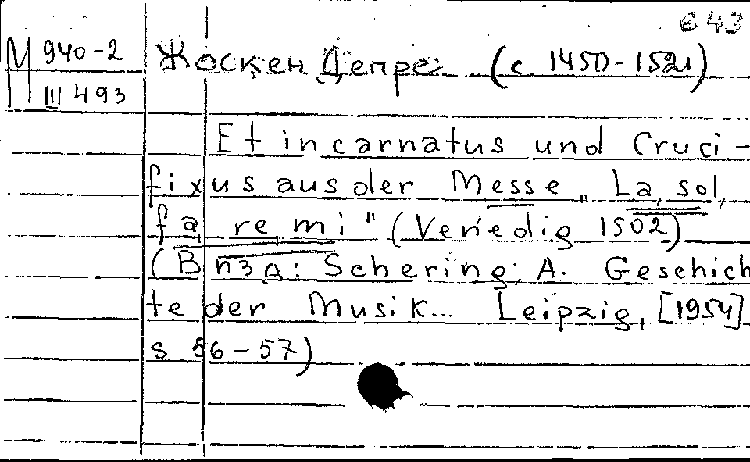 643
М 940-2
III 493
Жоскен Депре (с. 1450-1521)
Et incarnatus und Cruci-
fixus aus der Messe „La, sol,
fa, re mi" (Venedig 1502)
(В изд: Schering: A. Geschich
te der Musik... Leipzig, [1954]
s 56-57)